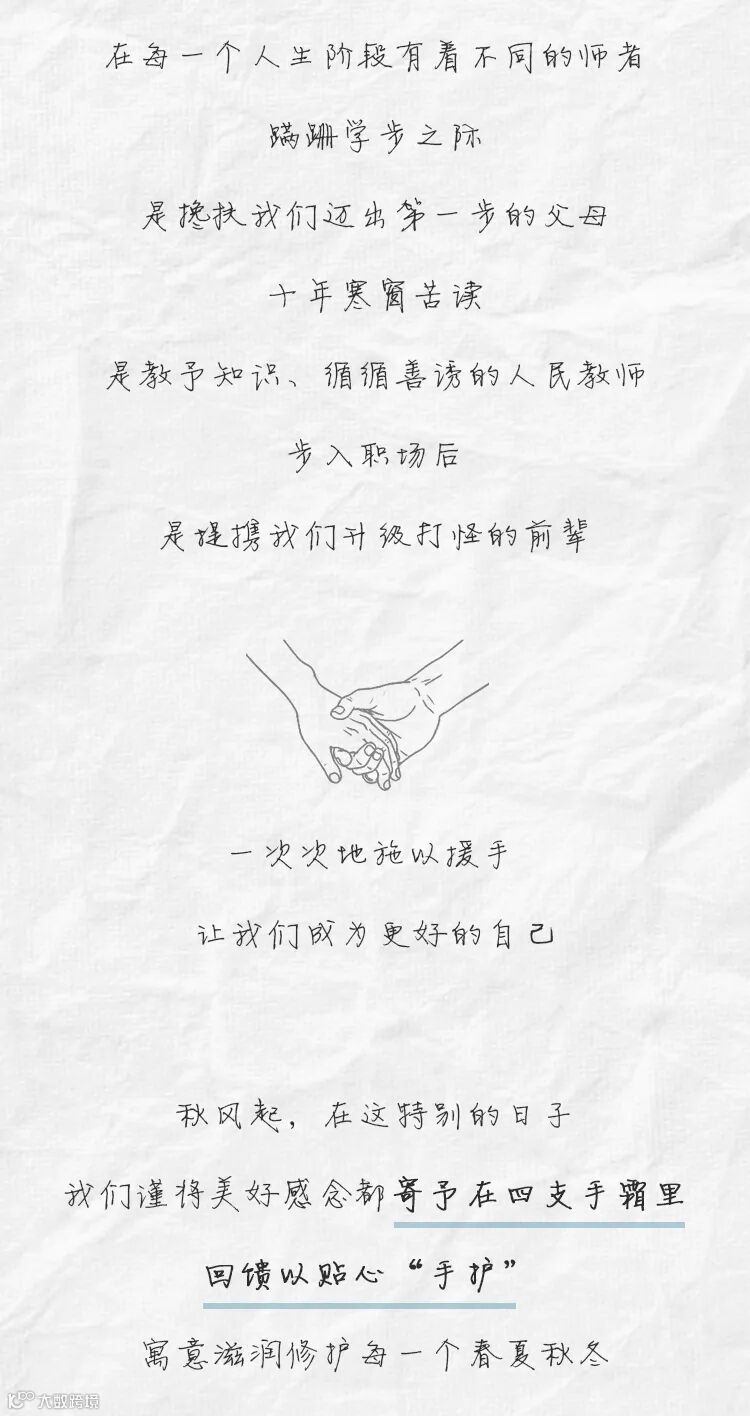 在每一个人生阶段有着不同的师者
蹒跚学步之际
是搀扶我们迈出第一步的父母
十年寒窗苦读
是教予知识、循循善诱的人民教师
步入职场后
是提携我们升级打怪的前辈
一次次地施以援手
让我们成为更好的自己
秋风起，在这特别的日子
我们谨将美好感念都寄予在四支手霜里
回馈以贴心“手护”
寓意滋润修护每一个春夏秋冬
大数跨境